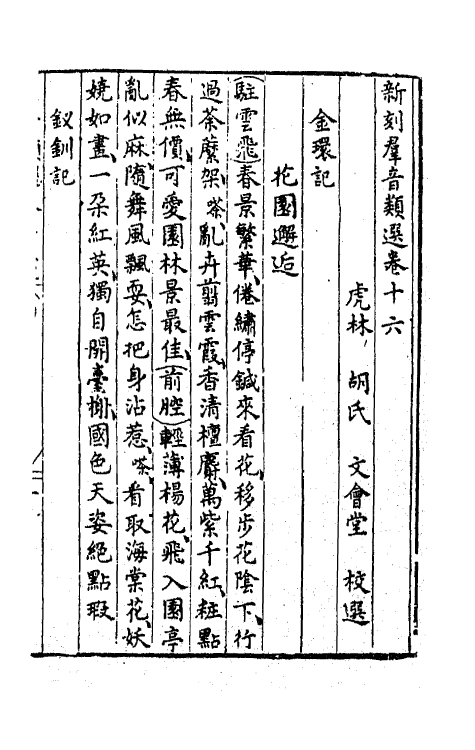 新刻羣音類選卷十六
虎林 胡氏 文會堂 校選
金環記
花園邂逅
(駐雲飛)春景繁華、倦繡停鍼來看花、移步花陰下、行
過荼䕷架、嗏亂卉蔚雲霞、香清檀麝、萬紫千紅、粧點
春無價、可愛園林景最佳、(前腔)輕薄楊花、飛入園亭
亂似麻、隨舞風飄耍、怎把身沾惹、嗏、看取海棠花、妖
嬈如畫、一朶紅英、獨自開臺榭、國色天姿絕點瑕
釵釧記